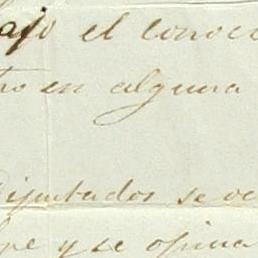 ajo el conoc
tro en alguna
Diputados se oc
pe y se opina